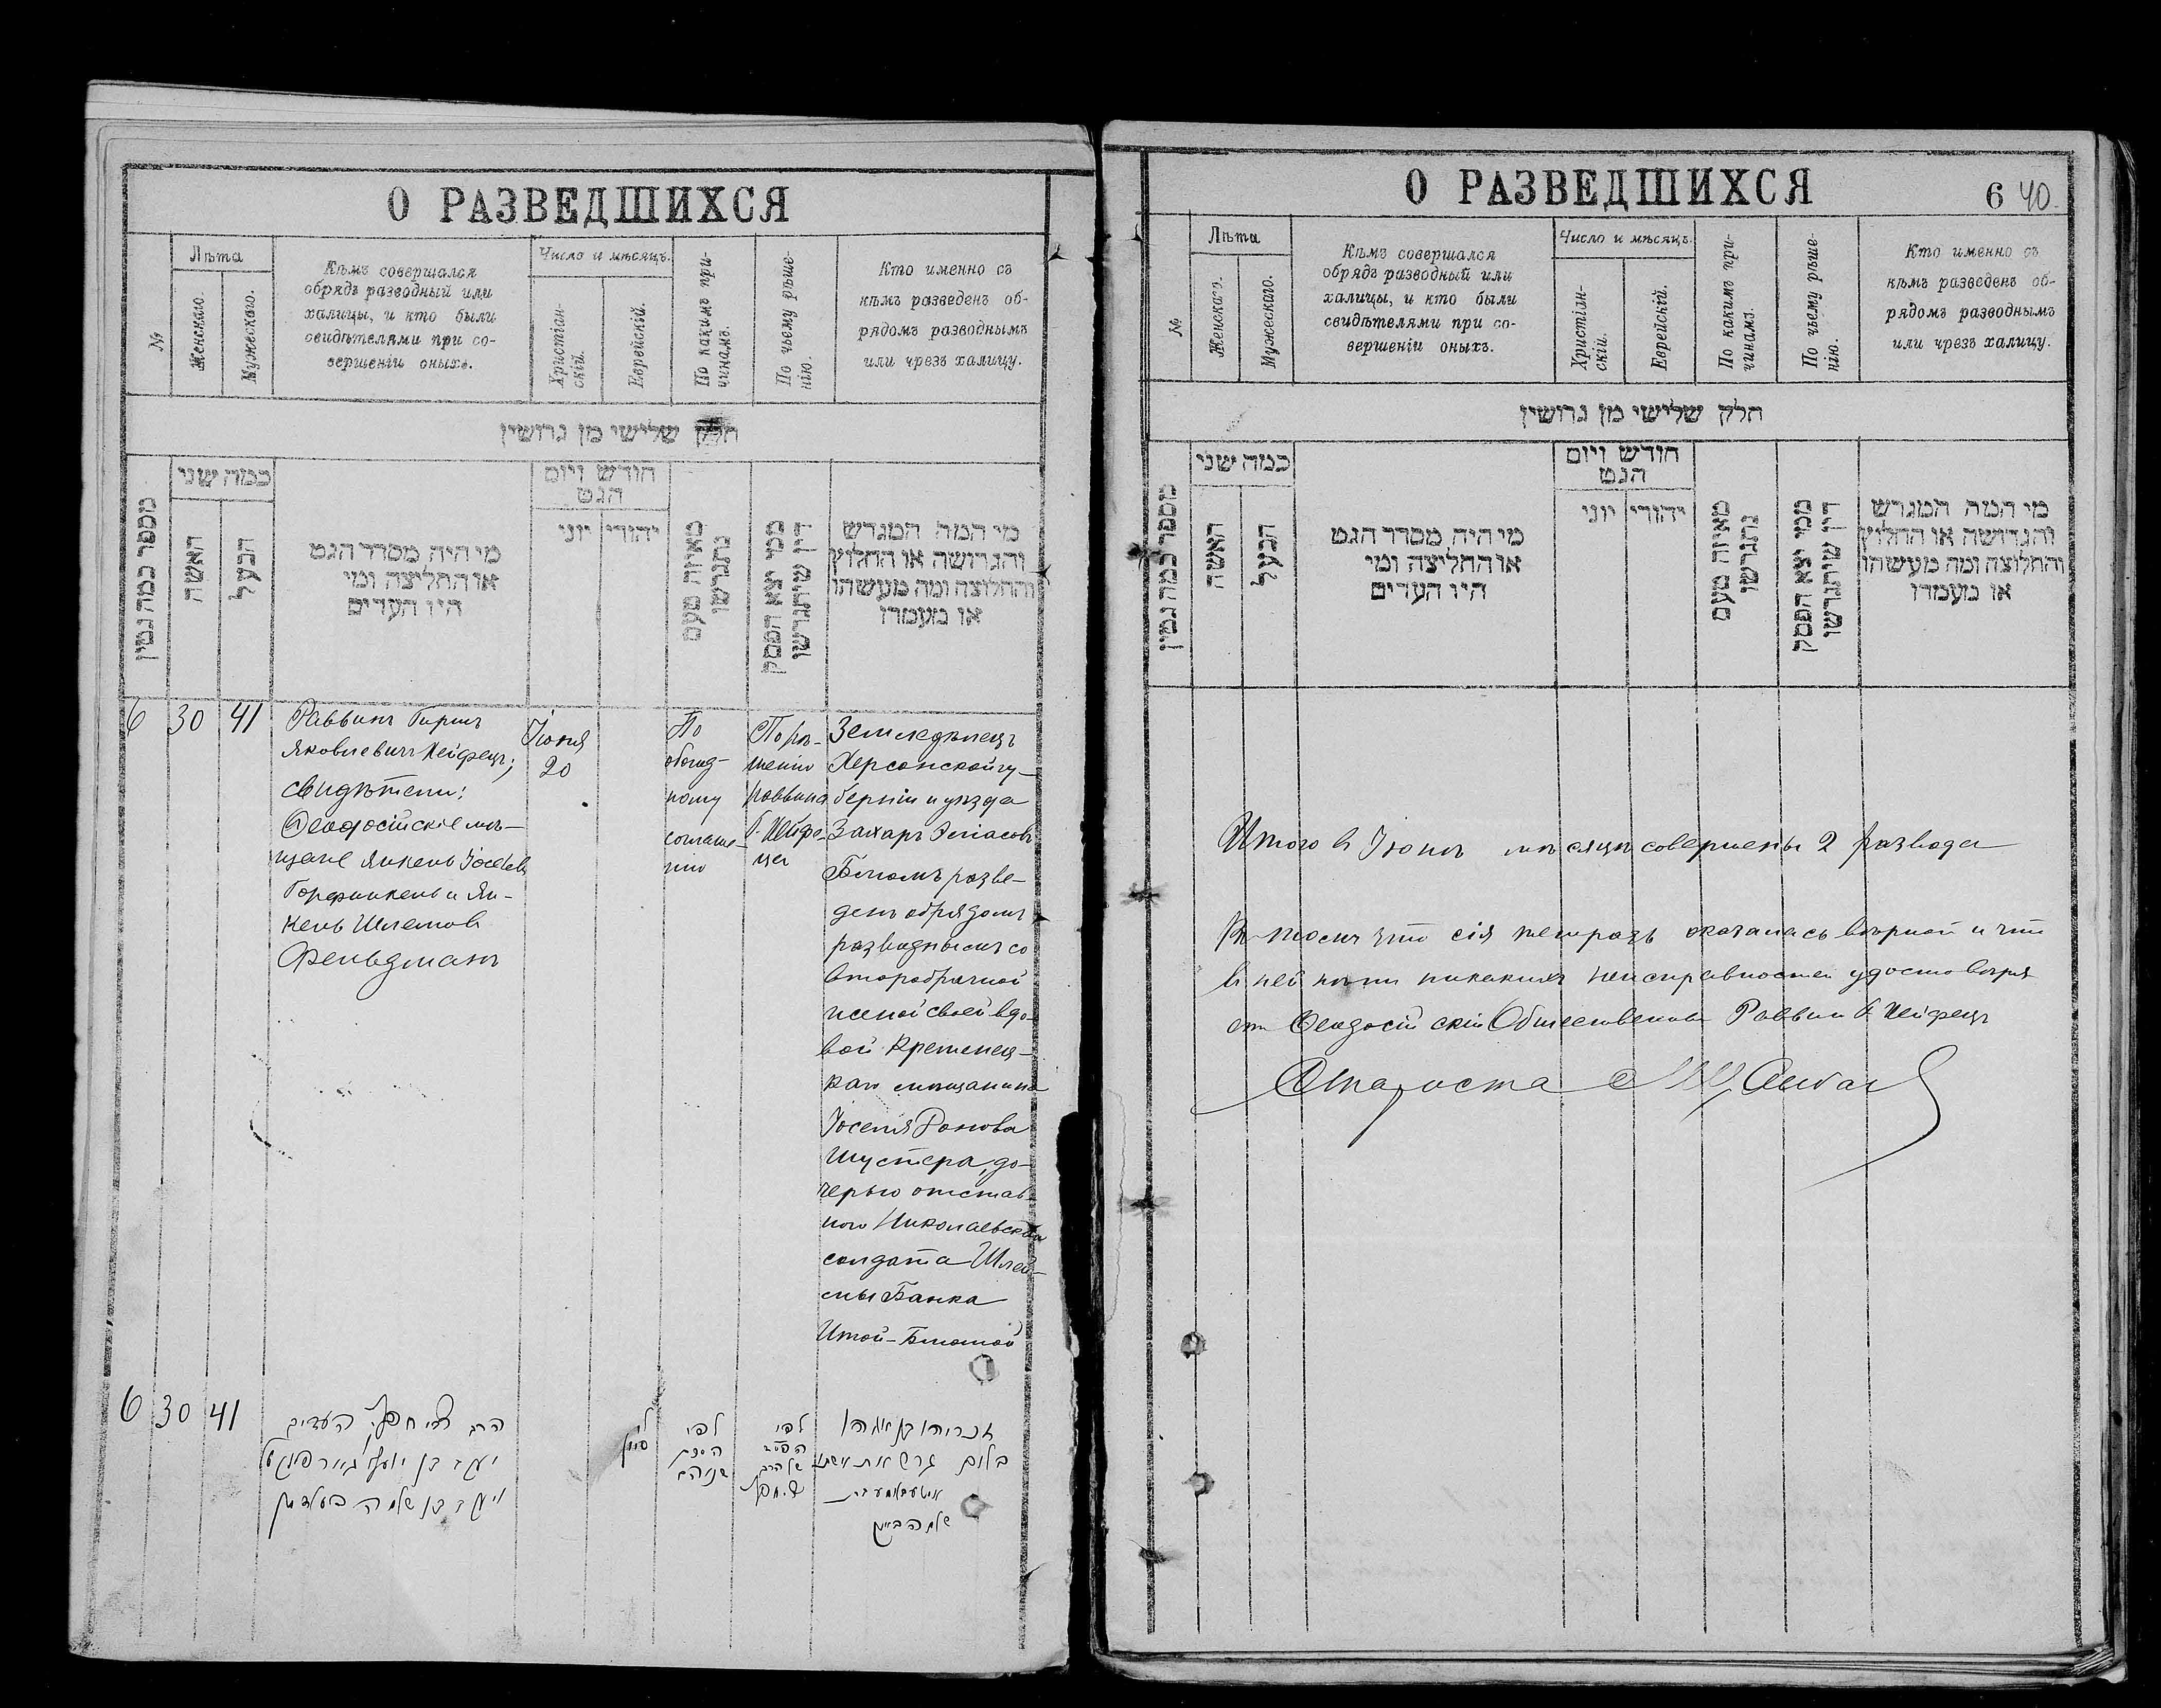 О РАЗВЕДШИХСЯ
№
Лѣта
Женскаго.
Мужескаго.
Кѣмъ совершался
обрядъ разводный или
халицы, и кто были
свидѣтелями при со-
вершеніи оныхъ.
Число и мѣсяцъ.
Христіан-
скій.
Еврейскій.
По какимъ при-
чинамъ.
По чьему рѣше-
нію.
Кто именно съ
кѣмъ разведенъ об-
рядомъ разводнымъ
или чрезъ халицу.
חלק שלישי מן גרושין
מספר כמה גטין
כמה שני
האשה
הבעל
מי היה מסדר הגט
או החליצה ומי
היו העדים
חודש ויום
הגט
יוני
יהודי
מאיזה טעם
נתגרשו
ממי יצא הפסק
דין שיתגרשו
מי המה המגרש
והגרושה או החלוץ
והחלוצה ומה מעשהו
או מעמדו
6
30
41
Раввинъ Гиршъ
Яковлевичъ Хейфецъ;
свидѣтели:
Ѳеодосійскіе мѣ-
щане Янкель Іосевъ
Горфинкель и Ян-
кель Шлемов
Фельдманъ
Іюня
20
По
обоюд-
ному
соглаше-
нію
По рѣ-
шенію
раввина
Г. Хейфе-
ца
Земледѣлецъ
Херсонской гу-
берніи и уѣзда
Захаръ Эліасовъ
Блюмъ разве-
денъ обрядомъ
разводнымъ со
второбрачной
женой своей вдо-
вой Кременец-
каго мѣщанина
Іоселя
Шустера, до-
черью отстав-
ного Николаевскаго
солдата Шлей-
мы Банка
Итой-Блюмой
6
30
41
הרב צבי חפץ העדים
יעקב בן יוסף
ויעקב בן שלמה פעלדמן
לפי
הסכם
שניהם
לפי
הפסק
של הרב
צ. חפץ
זכריהו בן אליהו
בלום גרש את אשתו
שלמה באנק
О РАЗВЕДШИХСЯ
6 40
№
Лѣта
Женскаго.
Мужескаго.
Кѣмъ совершался
обрядъ разводный или
халицы, и кто были
свидѣтелями при со-
вершеніи оныхъ.
Число и мѣсяцъ.
Христіан-
скій.
Еврейскій.
По какимъ при-
чинамъ.
По чьему рѣше-
нію.
Кто именно съ
кѣмъ разведенъ об-
рядомъ разводнымъ
или чрезъ халицу.
חלק שלישי מן גרושין
מספר כמה גטין
כמה שני
האשה
הבעל
מי היה מסדר הגט
או החליצה ומי
היו העדים
חודש ויום
הגט
יוני
יהודי
מאיזה טעם
נתגרשו
ממי יצא הפסק
דין שיתגרשו
מי המה המגרש
והגרושה או החלוץ
והחלוצה ומה מעשהו
או מעמדו
Итого в Іюнѣ мѣсяцѣ совершены 2 развода
В томъ что сія тетрадь оказалась вѣрной и что
в ней нѣтъ никакихъ неисправностей удостовѣря
етъ Ѳеодосійскій Общественный Раввин Г. Хейфецъ
Староста